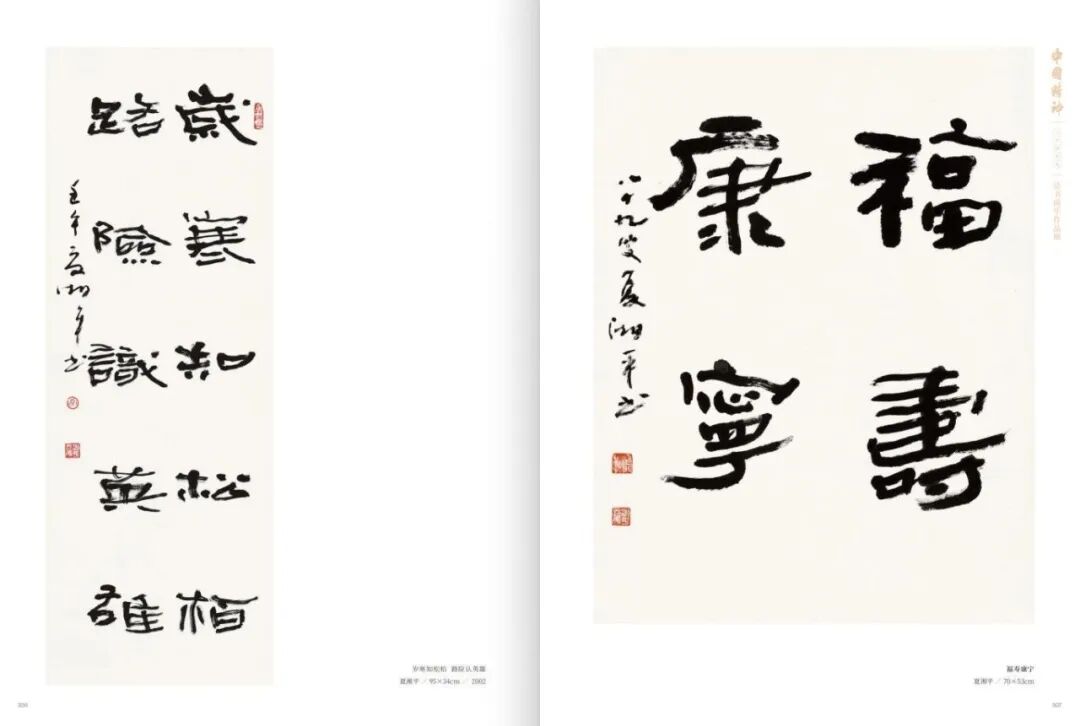 歲寒知松柏
路險識英雄
壬午夏湘平书
岁寒知松柏 路险认英雄
夏湘平 / 95×34cm / 2002
306
福壽
康寧
八十九叟夏湘平书
中國精神
福寿康宁
夏湘平 / 70×53cm
307